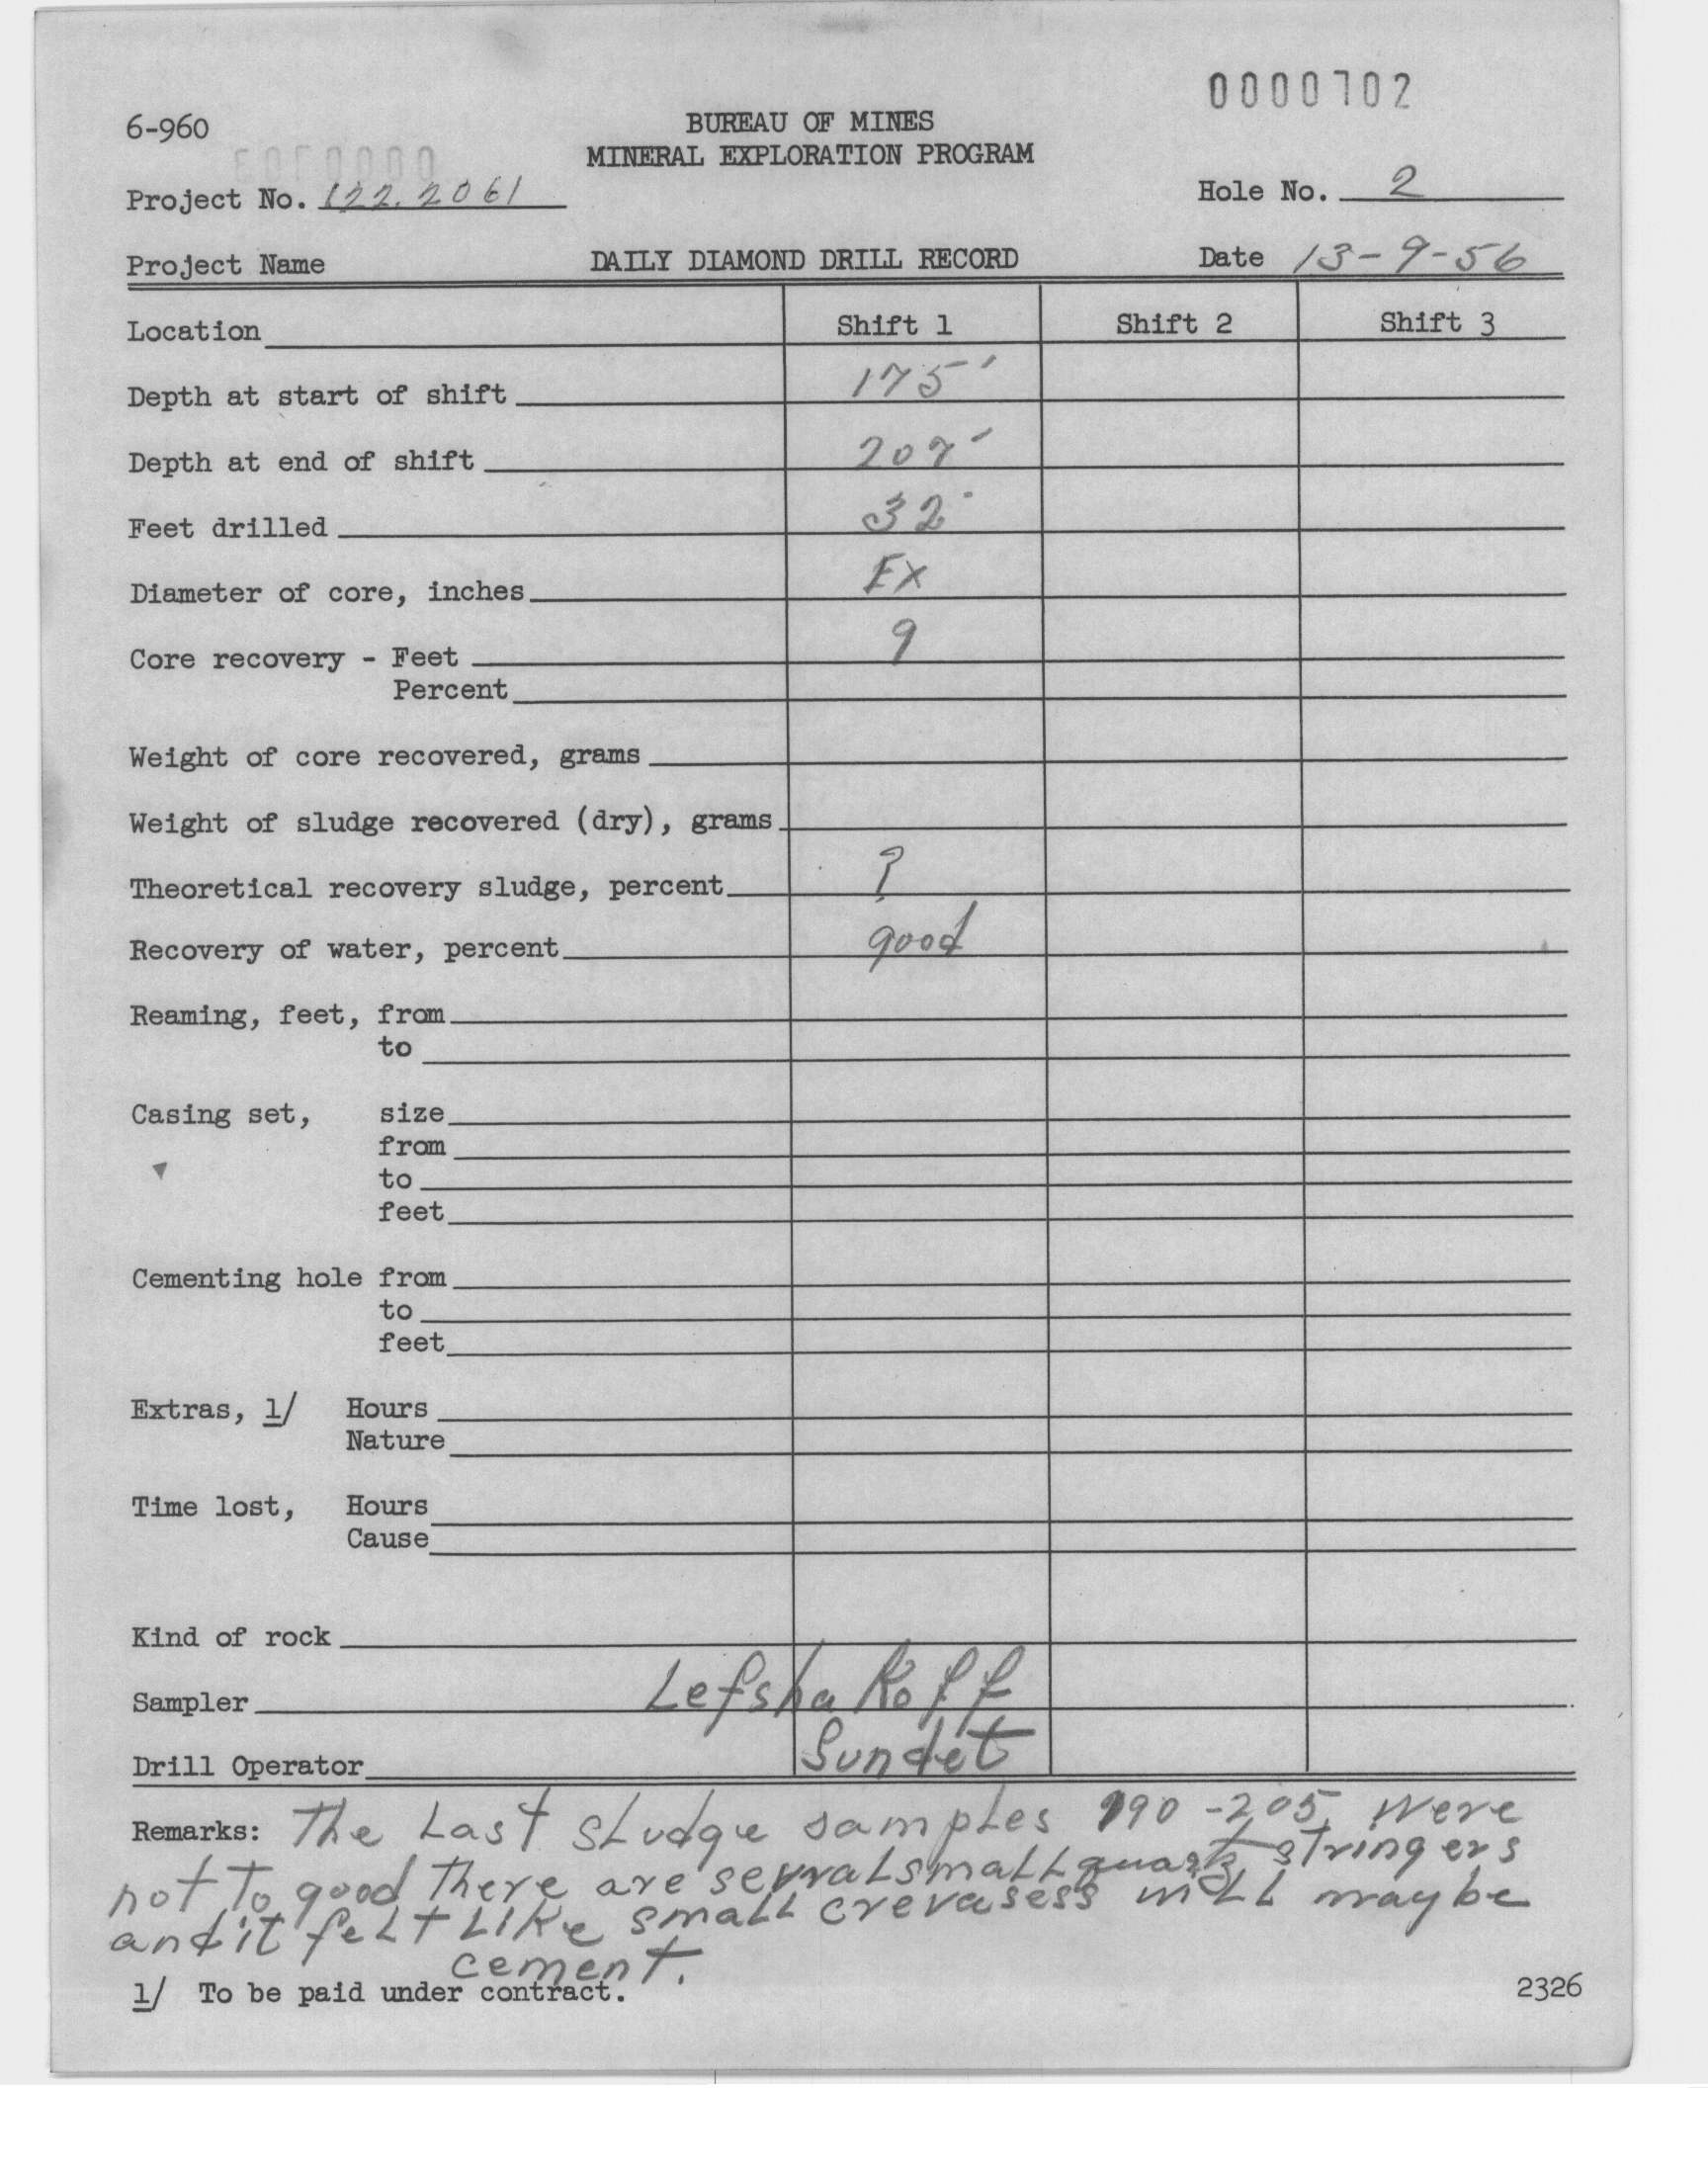 0000702
6-960
BUREAU OF MINES
MINERAL EXPLORATION PROGRAM
Project No. 122.2061
Hole No. 2
Project Name
DAILY DIAMOND DRILL RECORD
Date 13-9-56
Location Shift 1 Shift 2 Shift 3
Depth at start of shift 175'
Depth at end of shift 207'
Feet drilled 32'
Diameter of core, inches EX
Core recovery - Feet 9
Percent
Weight of core recovered, grams
Weight of sludge recovered (dry), grams
Theoretical recovery sludge, percent ?
Recovery of water, percent good
Reaming, feet, from
to
Casing set, size
from
to
feet
Cementing hole from
to
feet
Extras, 1/ Hours
Nature
Time lost, Hours
Cause
Kind of rock
Sampler Lefshakoff
Drill Operator Sundet
Remarks: The Last sludge samples 190-205, were
not to good there are sevral small quartz stringers
and it felt Like small crevasess will maybe
cement.
1/ To be paid under contract.
2326